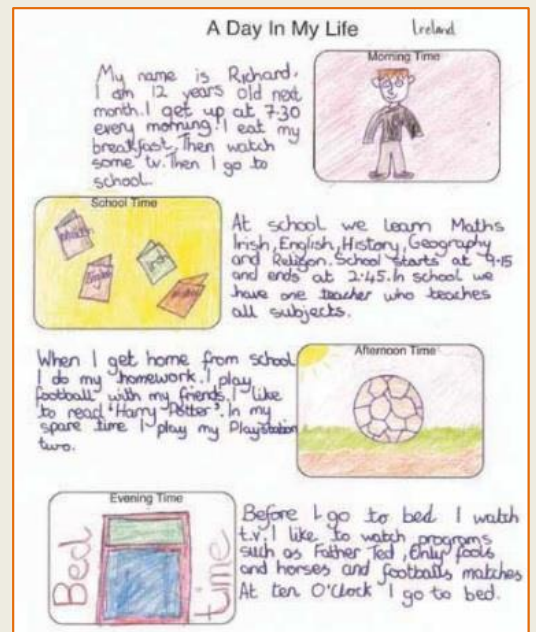 A Day In My Life
Ireland
My name is Richard.
I am 12 years old next
month. I get up at 7.30
every morning. I eat my
breakfast, Then watch
some tv. Then I go to
school.
Morning Time
School Time
Maths
English
Irish
At school we learn Maths
Irish, English, History, Geography
and Religon. School starts at 9.15
and ends at 2.45. In school we
have one teacher who teaches
all subjects.
When I get home from school
I do my homework. I play
football with my friends. I like
to read 'Harry Potter'. In my
spare time I play my Playstation
two.
Afternoon Time
Evening Time
Bed
time
Before I go to bed I watch
t.v. I like to watch programs
such as Father Ted, Only fools
and horses and footballs matches
At ten O'Clock I go to bed.